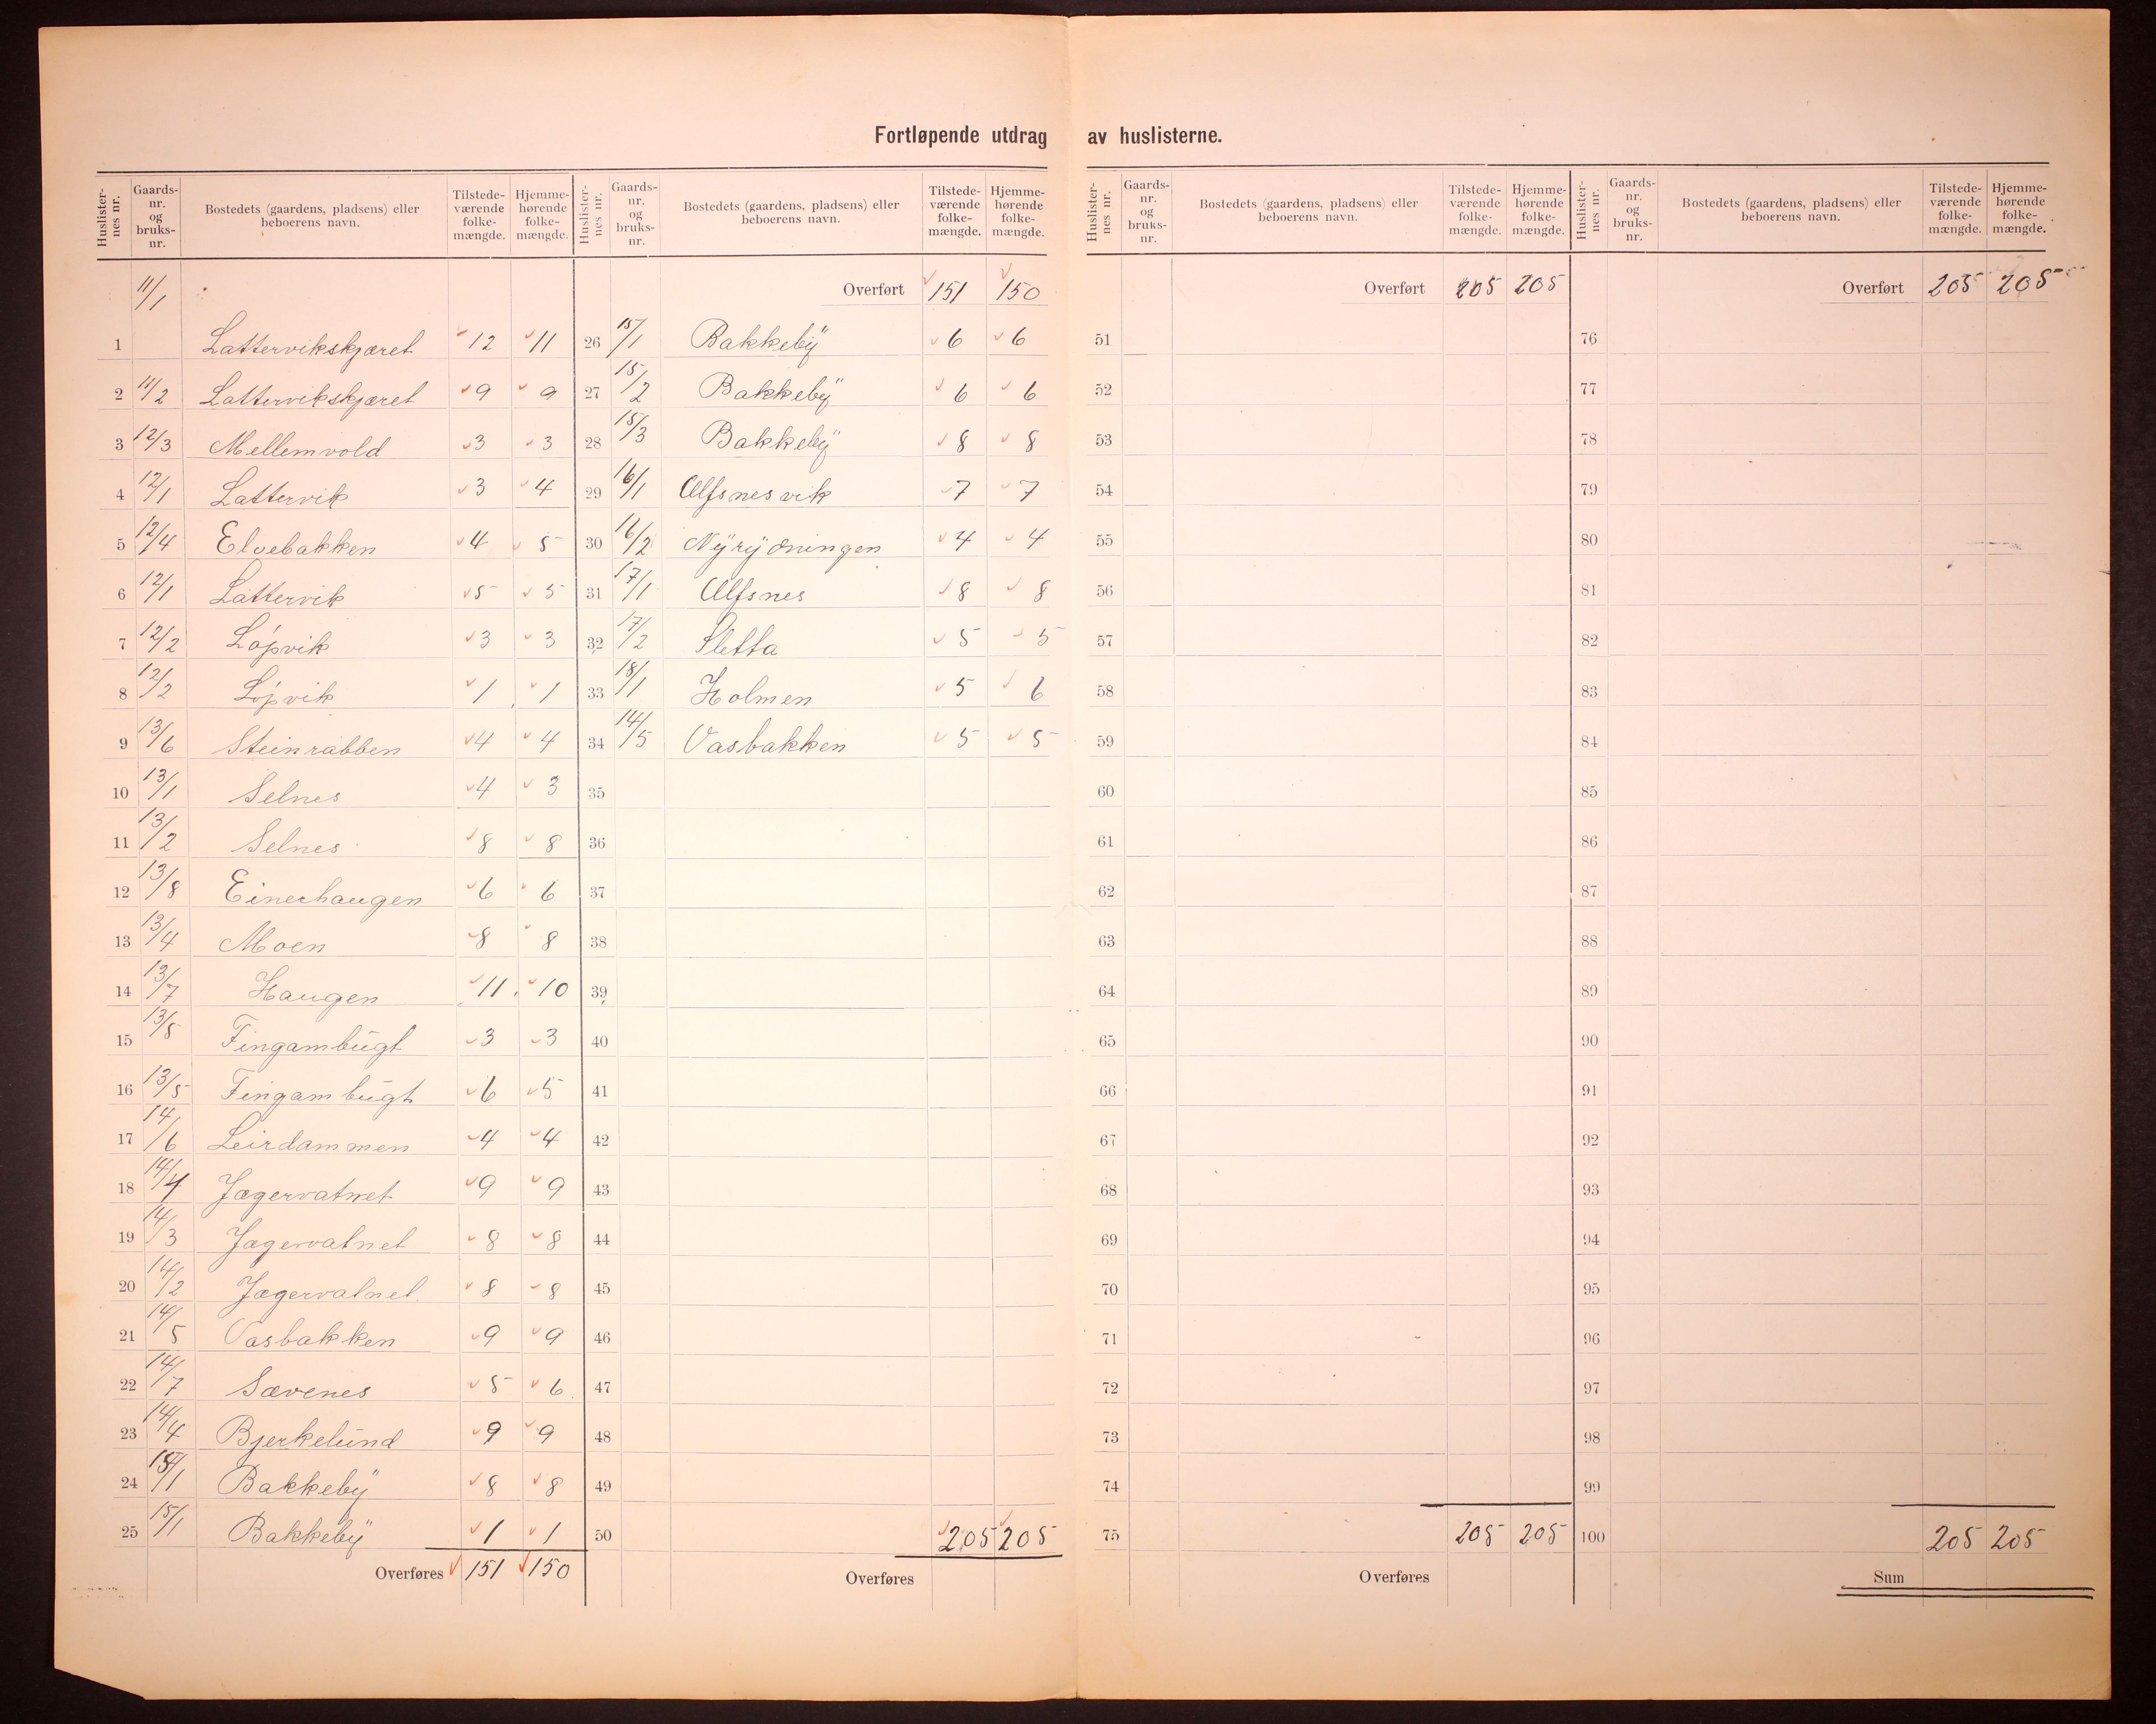 Fortløpende utdrag av huslisterne.
Huslister-nes nr. Gaards-nr. og bruks-nr. Bostedets (gaardens, pladsens) eller beboerens navn. Tilstede-værende folke-mængde. Hjemme-hørende folke-mængde.
11/1
1 Lattervikskjæret 12 11
2 11/2 Lattervikskjæret 9 9
3 12/3 Mellemvold 3 3
4 12/1 Lattervik 3 4
5 12/4 Elvebakken 4 5
6 12/1 Lattervik 5 5
7 12/2 Løpvik 3 3
8 12/2 Løpvik 1 1
9 13/6 Steinrabben 4 4
10 13/1 Selnes 4 3
11 13/2 Selnes 8 8
12 13/8 Einerhaugen 6 6
13 13/4 Moen 8 8
14 13/7 Haugen 11 10
15 13/5 Fingambugt 3 3
16 13/5 Fingambugt 6 5
17 14/6 Leirdammen 4 4
18 14/4 Jægervatnet 9 9
19 14/3 Jægervatnet 8 8
20 14/2 Jægervatnet 8 8
21 14/5 Vasbakken 9 9
22 14/7 Sævenes 5 6
23 14/4 Bjerkelund 9 9
24 15/1 Bakkebÿ 8 8
25 15/1 Bakkebÿ 1 1
Overføres 151 150
Huslister-nes nr. Gaards-nr. og bruks-nr. Bostedets (gaardens, pladsens) eller beboerens navn. Tilstede-værende folke-mængde. Hjemme-hørende folke-mængde.
Overført 151 150
26 15/1 Bakkebÿ 6 6
27 15/2 Bakkebÿ 6 6
28 15/3 Bakkebÿ 8 8
29 16/1 Ulfsnesvik 7 7
30 16/2 Nÿrÿdningen 4 4
31 17/1 Ulfsnes 8 8
32 17/2 Sletta 5 5
33 18/1 Holmen 5 6
34 14/5 Vasbakken 5 5
35
36
37
38
39
40
41
42
43
44
45
46
47
48
49
50 205 205
Overføres
Huslister-nes nr. Gaards-nr. og bruks-nr. Bostedets (gaardens, pladsens) eller beboerens navn. Tilstede-værende folke-mængde. Hjemme-hørende folke-mængde.
Overført 205 205
51
52
53
54
55
56
57
58
59
60
61
62
63
64
65
66
67
68
69
70
71
72
73
74
75 205 205
Overføres
Huslister-nes nr. Gaards-nr. og bruks-nr. Bostedets (gaardens, pladsens) eller beboerens navn. Tilstede-værende folke-mængde. Hjemme-hørende folke-mængde.
Overført 205 205
76
77
78
79
80
81
82
83
84
85
86
87
88
89
90
91
92
93
94
95
96
97
98
99
100 205 205
Sum